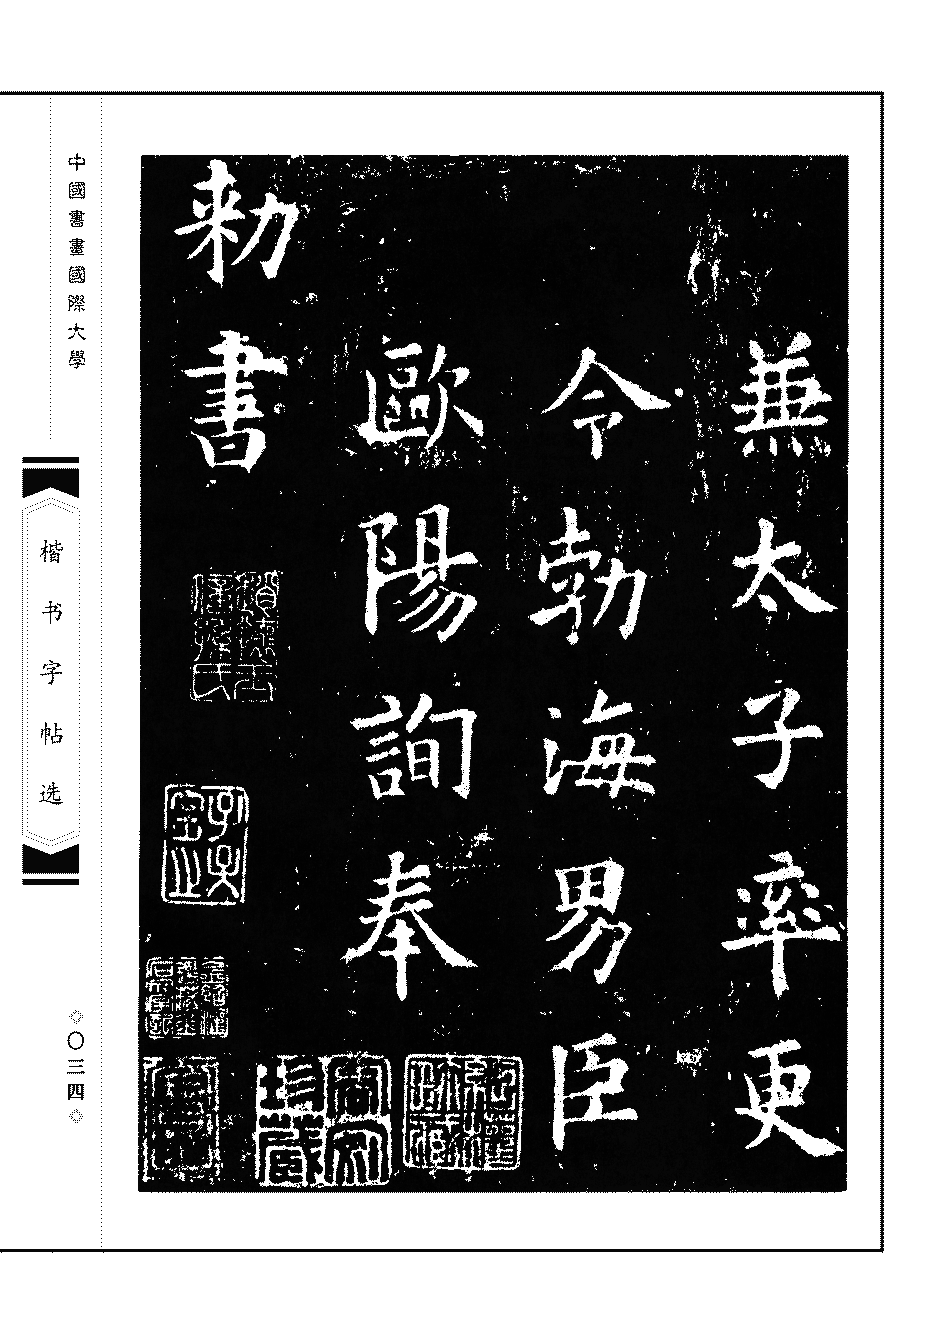 兼太子率更
令勃海男臣
歐陽詢奉
勑書
中國書畫國際大學
楷书字帖选
◇〇三四◇